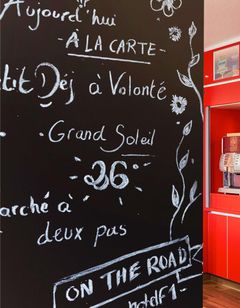 Aujourd'hui
- À LA CARTE -
tit Déj à Volonté
- Grand Soleil
26
arché à
deux pas
ON THE ROAD
hotelF1